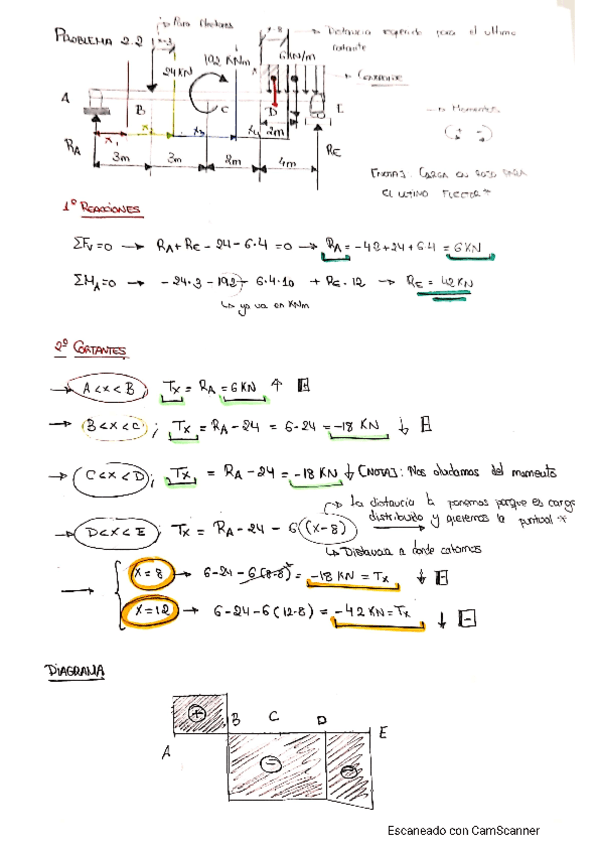 Para Flectores
PROBLEMA 2.2
x-8
Distancia requerida para el ultimo
cortante
24KN
192 KNm
6KN/m
Cortante
A
B
C
D
E
Momentos
RA
x1
x2
x3
x4
2m
RE
3m
3m
2m
4m
[NOTA]: CARGA EN ROJO PARA
EL ULTIMO FLECTOR *
1º REACCIONES
ΣFv=0 → RA+RE-24-6·4=0 → RA=-42+24+6·4=6KN
ΣMA=0 → -24·3-192-6·4·10+RE·12 → RE=42KN
↳ ya va en KNm
2º CORTANTES
→ A<x<B; Tx=RA=6KN ↑ [+]
→ B<x<C; Tx=RA-24=6-24=-18 KN ↓ [-]
→ C<x<D; Tx=RA-24=-18 KN ↓ [NOTA]: Nos olvidamos del momento
↱ La distancia la ponemos porque es carga
distribuida y queremos la puntual *
→ D<x<E; Tx=RA-24-6(x-8)
↳ Distancia a donde cortamos
→ x=8 → 6-24-6(8-8)=-18 KN=Tx ↓ [-]
x=12 → 6-24-6(12-8)=-42KN=Tx ↓ [-]
DIAGRAMA
+
B
C
D
E
A
-
-
Escaneado con CamScanner